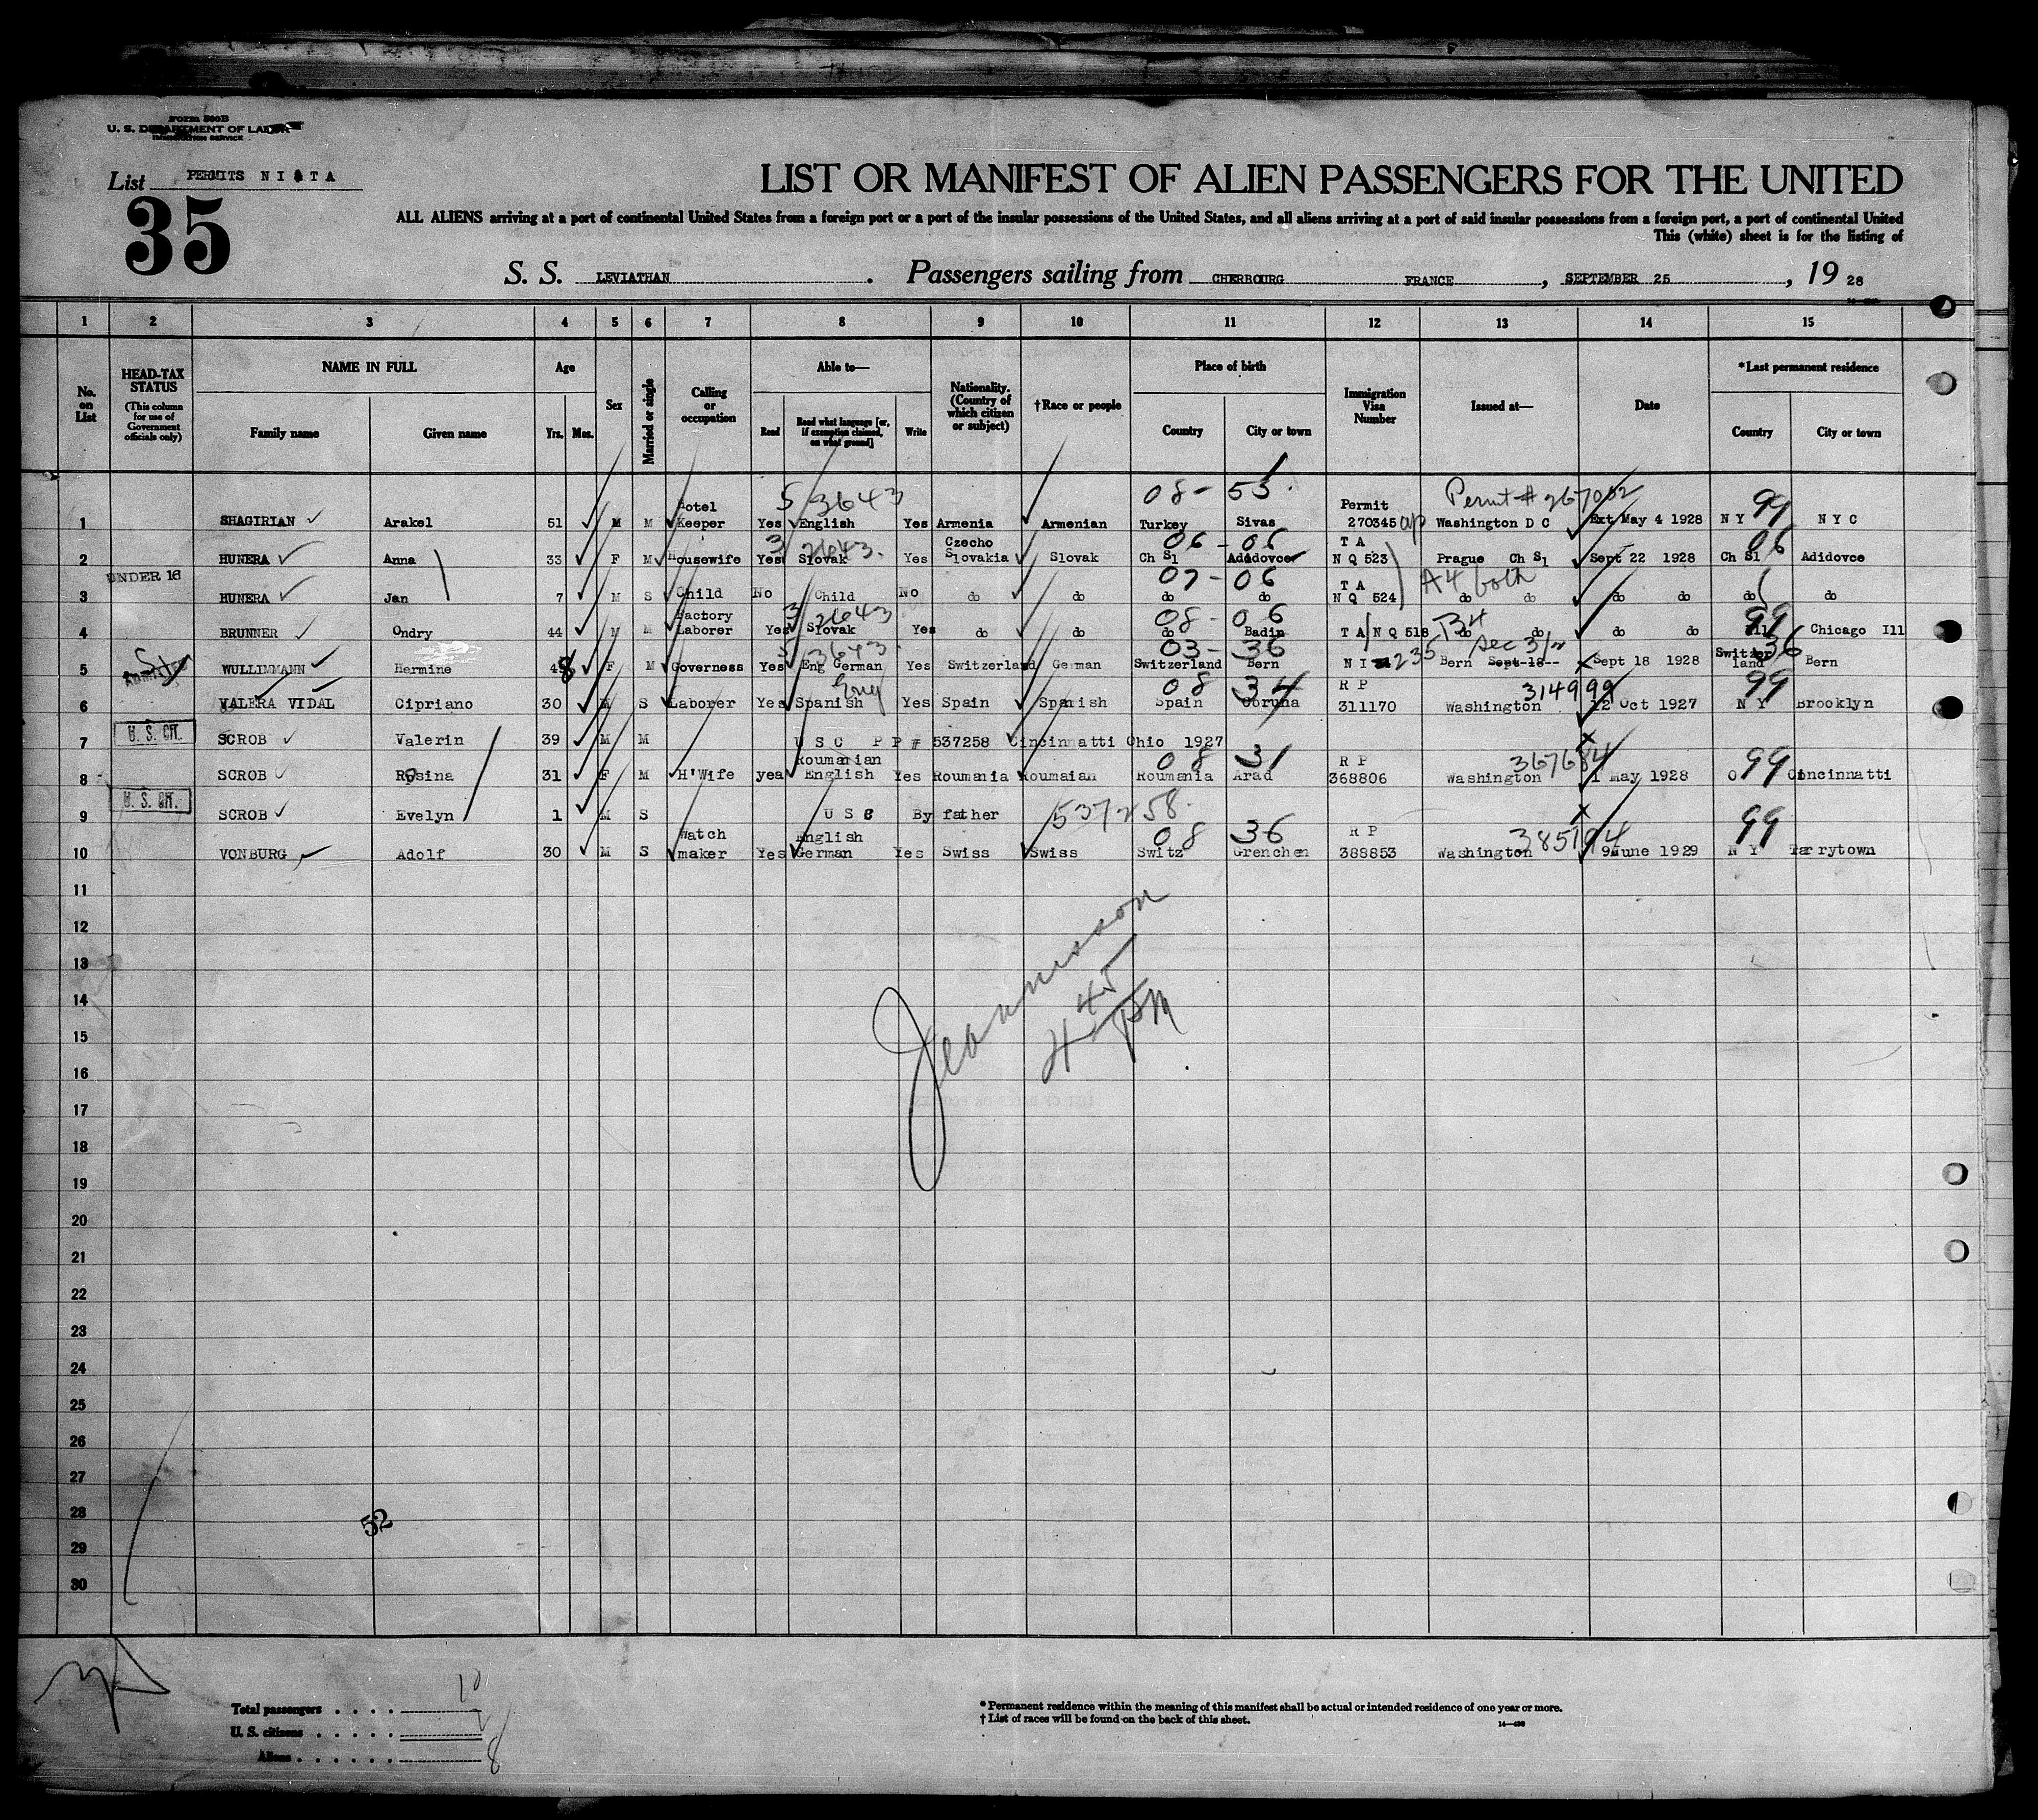 Form 500B
U. S. DEPARTMENT OF LABOR
IMMIGRATION SERVICE
List PERMITS N I & T A
35
LIST OR MANIFEST OF ALIEN PASSENGERS FOR THE UNITED
ALL ALIENS arriving at a port of continental United States from a foreign port or a port of the insular possessions of the United States, and all aliens arriving at a port of said insular possessions from a foreign port, a port of continental United
This (white) sheet is for the listing of
S. S. LEVIATHAN . Passengers sailing from CHERBOURG FRANCE , SEPTEMBER 25 , 19 28
1 2 3 4 5 6 7 8 9 10 11 12 13 14 15
No. on List
HEAD-TAX STATUS (This column for use of Government officials only)
NAME IN FULL Family name Given name
Age Yrs. Mos.
Sex
Married or single
Calling or occupation
Able to— Read Read what language [or, if exemption claimed, on what ground] Write
Nationality. (Country of which citizen or subject)
†Race or people
Place of birth Country City or town
Immigration Visa Number
Issued at—
Date
*Last permanent residence Country City or town
Hotel 5 3643 08 - 53 Permit Permit # 267002 99
1 SHAGIRIAN Arakel 51 M M Keeper Yes English Yes Armenia Armenian Turkey Sivas 270345 Washington D C Ext May 4 1928 N Y N Y C
3 2643 Czecho 06 - 06 T A 06
2 HUNERA Anna 33 F M Housewife Yes Slovak Yes Slovakia Slovak Ch Sl Adidovce N Q 523 Prague Ch Sl Sept 22 1928 Ch Sl Adidovce
UNDER 16 07 - 06 T A A4 both
3 HUNERA Jan 7 M S Child No Child No do do do do N Q 524 do do do do do do
Factory 3 2643 08 - 06 B4 99
4 BRUNNER Ondry 44 M M Laborer Yes Slovak Yes do do do Badin T A N Q 518 do do do do Ill Chicago Ill
5 3643 03 - 36 235 Sec 3/ 36
5 WULLIMMANN Hermine 48 F M Governess Yes Eng German Yes Switzerland German Switzerland Bern N I Bern Sept 18 Sept 18 1928 Switzerland Bern
Eng 08 34 R P 314999 99
6 VALERA VIDAL Cipriano 30 M S Laborer Yes Spanish Yes Spain Spanish Spain Coruna 311170 Washington 12 Oct 1927 N Y Brooklyn
U. S. CIT.
7 SCROB Valerin 39 M M U S C P P # 537258 Cincinnatti Ohio 1927
Roumanian 08 31 R P 367684 99
8 SCROB Rosina 31 F M H'Wife yea English Yes Roumania Roumaian Roumania Arad 368806 Washington 1 may 1928 O Cincinnatti
U. S. CIT.
9 SCROB Evelyn 1 M S U S C By father 537258
Watch English 08 36 R P 385194 99
10 VONBURG Adolf 30 M S maker Yes German Yes Swiss Swiss Switz Grenchen 388853 Washington 9 June 1929 N Y Tarrytown
11
12
13
14
15
16
17
18
19
20
21
22
23
24
25
26
27
28
29
30
Jeannisson
4 45 PM
52
Total passengers . . . . 10
U. S. citizens . . . . .
Aliens . . . . . . 8
* Permanent residence within the meaning of this manifest shall be actual or intended residence of one year or more.
† List of races will be found on the back of this sheet.